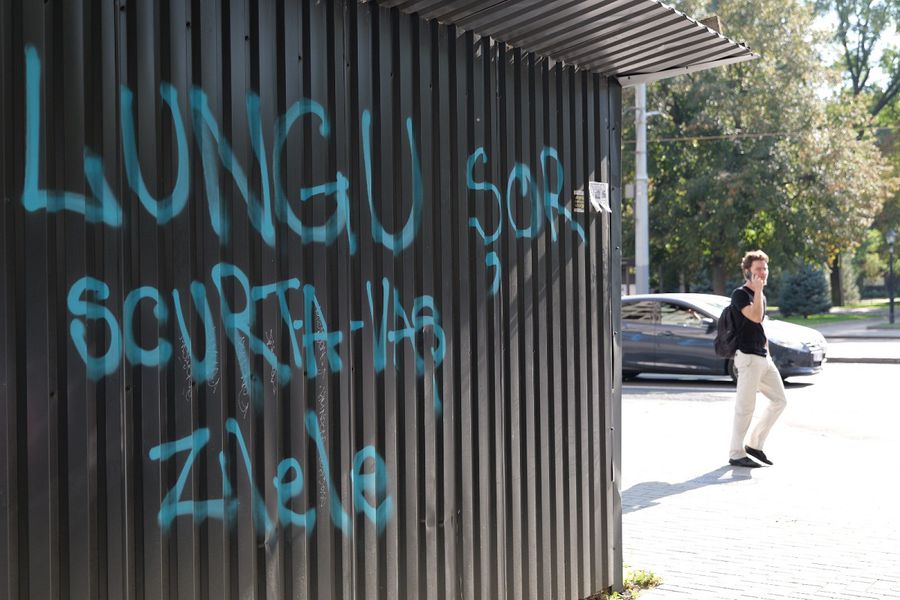 LUNGU ȘOR
SCURTA-VAȘ
Zilele